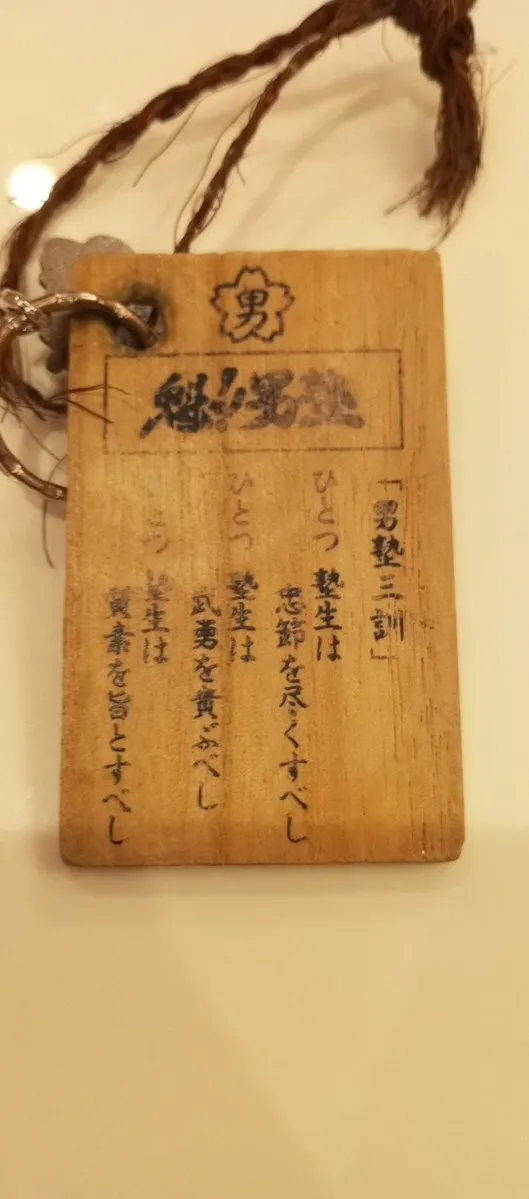 男
魁!!男塾
「男塾三訓」
ひとつ 塾生は
忠節を尽くすべし
ひとつ 塾生は
武勇を貴ぶべし
ひとつ 塾生は
質素を旨とすべし